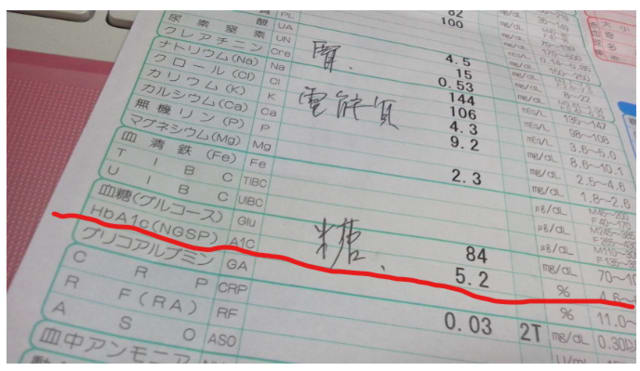 62
PL
100
酸 UA 4.5 mg/dL
尿素窒素 UN 15 mg/dL 8~22
クレアチニン Cre 腎. 0.53 mg/dL
ナトリウム(Na) Na 144 mEq/L 135~147
クロール(Cl) Cl 電解質 106 mEq/L 98~108
カリウム(K) K 4.3 mEq/L 3.6~5.0
カルシウム(Ca) Ca 9.2 mg/dL 8.6~10.1
無機リン(P) P mg/dL 2.5~4.6
マグネシウム(Mg) Mg 2.3 mg/dL 1.8~2.6
血清鉄(Fe) Fe μg/dL
TIBC TIBC μg/dL
UIBC UIBC μg/dL
血糖(グルコース) Glu 糖. 84 mg/dL 70~
HbA1c(NGSP) A1C 5.2 % 4.6~
グリコアルブミン GA % 11.0~
CRP CRP 0.03 2T mg/dL 0.30以
RF(RA) RF
ASO ASO
血中アンモニア